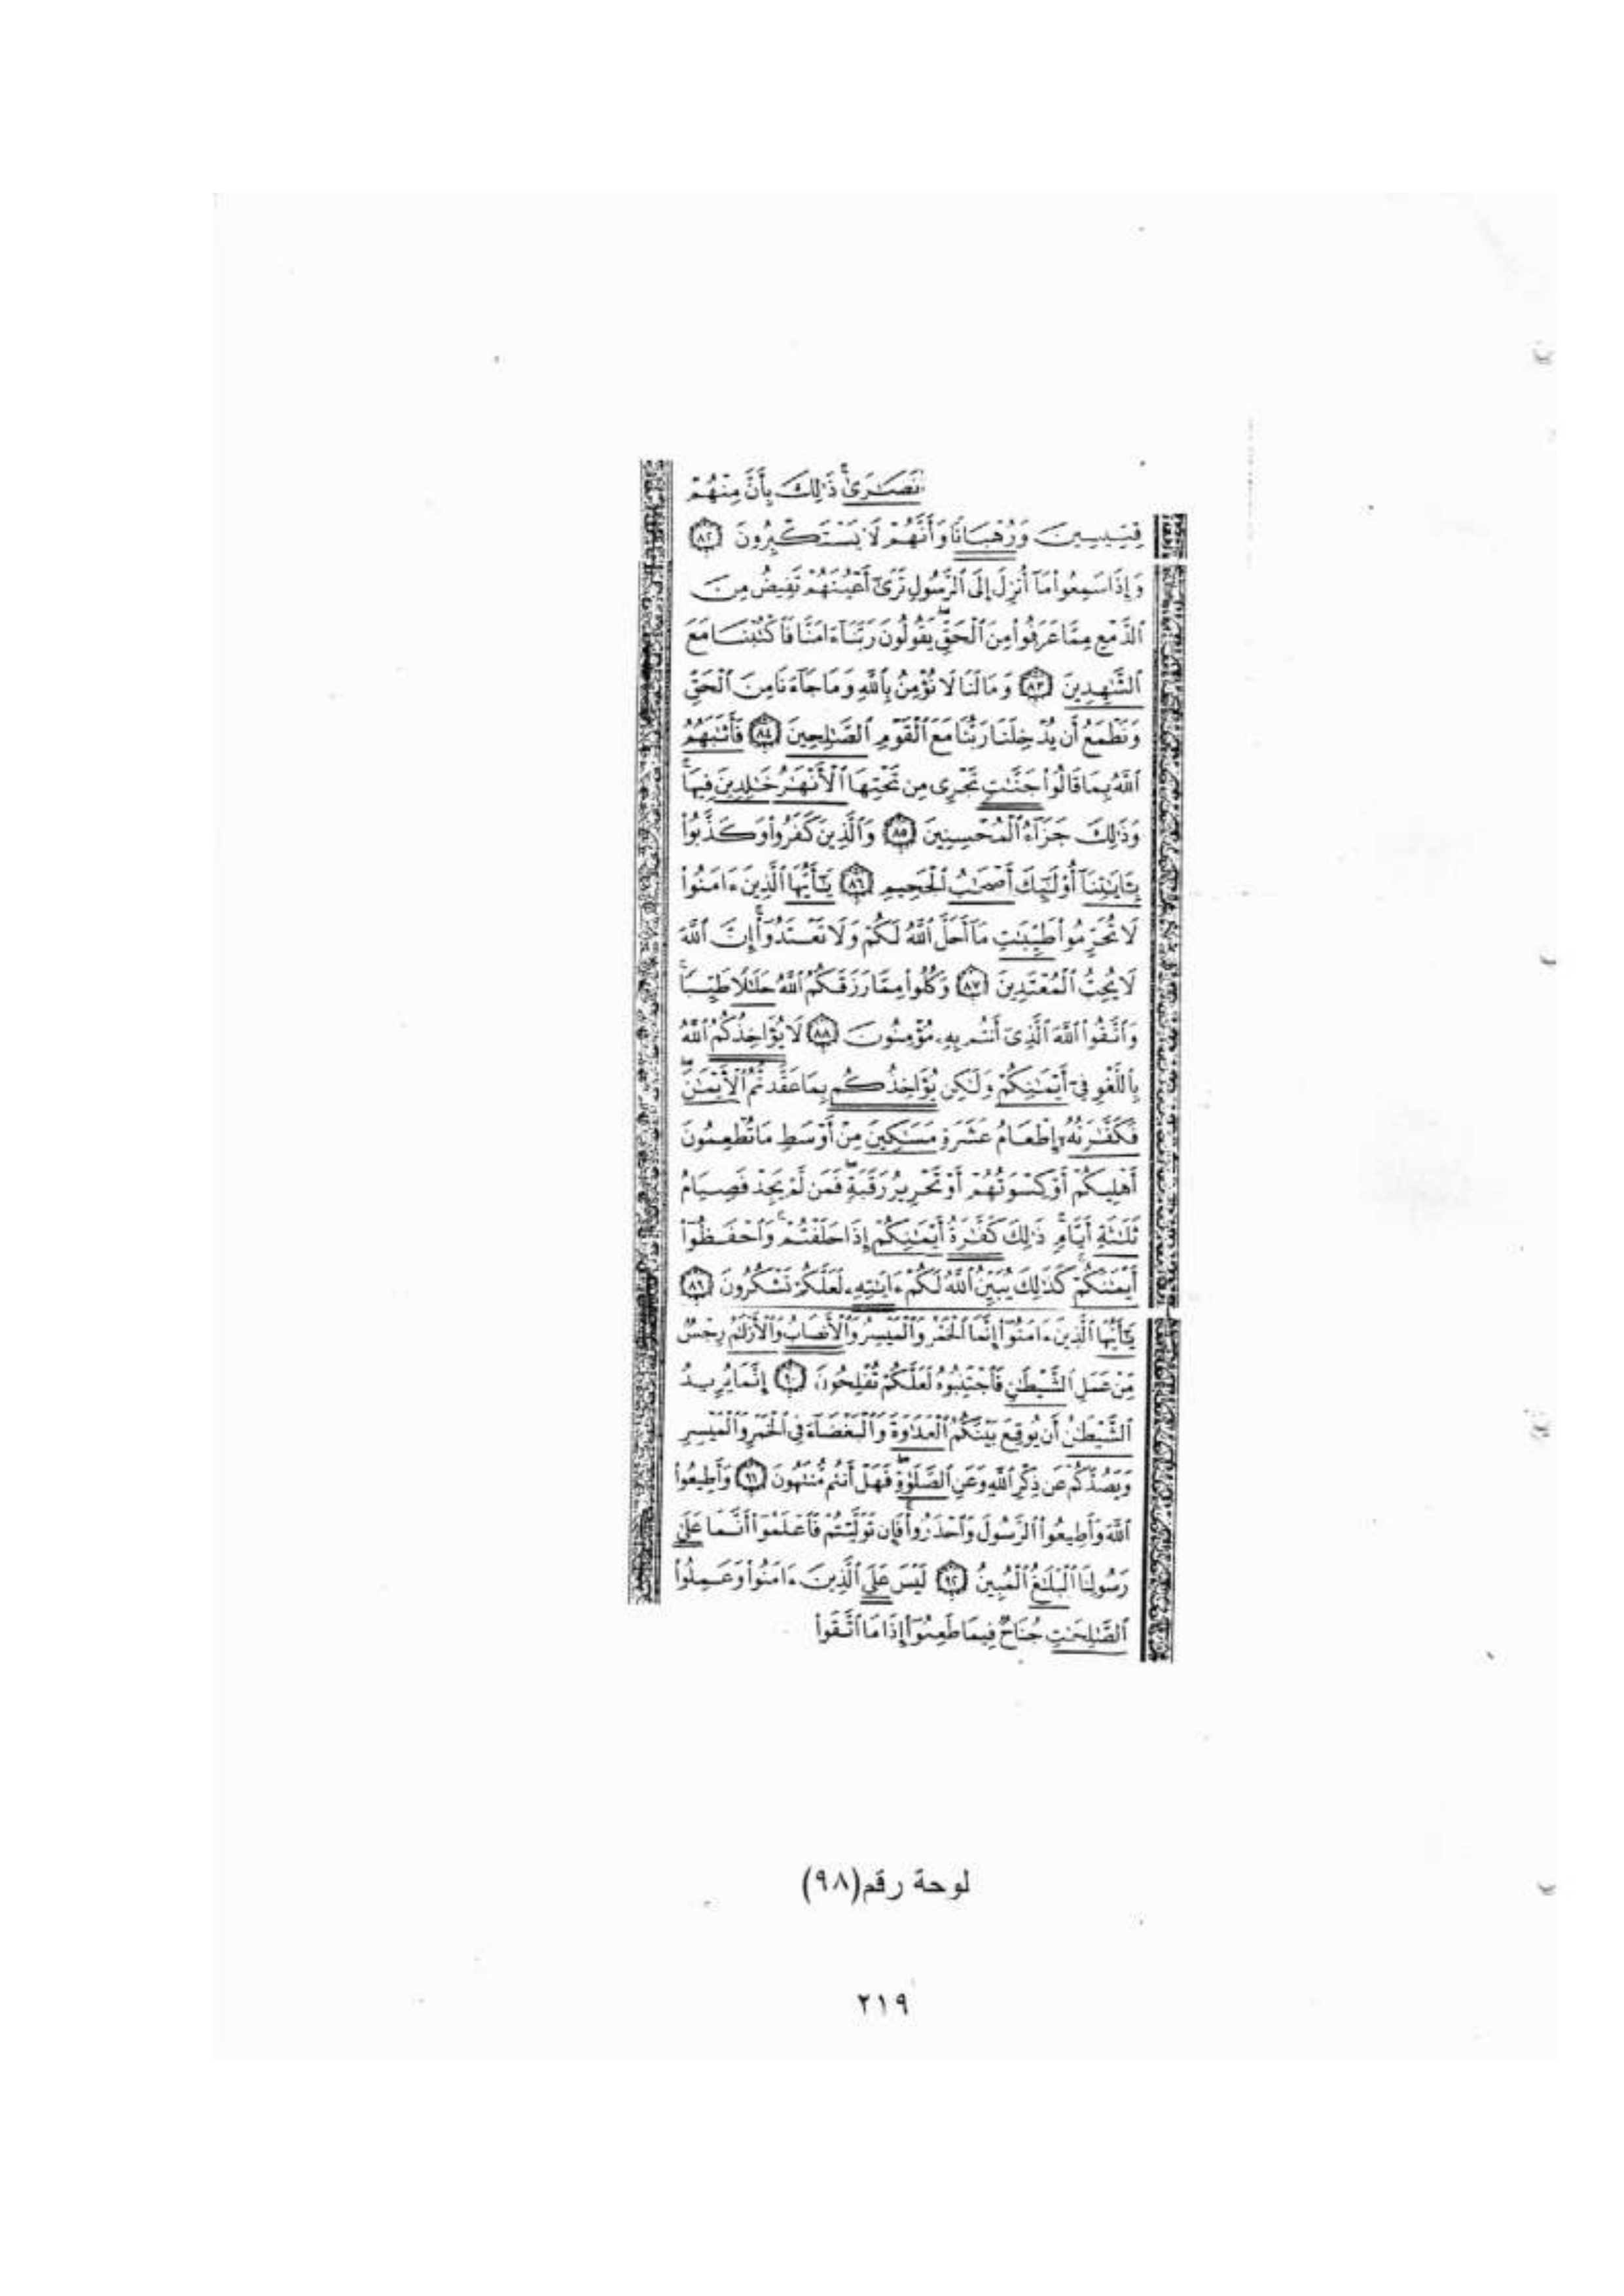 نَصَٰرَىٰ ذَٰلِكَ بِأَنَّ مِنْهُمْ
قِسِّيسِينَ وَرُهْبَانًا وَأَنَّهُمْ لَا يَسْتَكْبِرُونَ ٨٢
وَإِذَا سَمِعُوا۟ مَآ أُنزِلَ إِلَى ٱلرَّسُولِ تَرَىٰٓ أَعْيُنَهُمْ تَفِيضُ مِنَ
ٱلدَّمْعِ مِمَّا عَرَفُوا۟ مِنَ ٱلْحَقِّ ۖ يَقُولُونَ رَبَّنَآ ءَامَنَّا فَٱكْتُبْنَا مَعَ
ٱلشَّٰهِدِينَ ٨٣ وَمَا لَنَا لَا نُؤْمِنُ بِٱللَّهِ وَمَا جَآءَنَا مِنَ ٱلْحَقِّ
وَنَطْمَعُ أَن يُدْخِلَنَا رَبُّنَا مَعَ ٱلْقَوْمِ ٱلصَّٰلِحِينَ ٨٤ فَأَثَٰبَهُمُ
ٱللَّهُ بِمَا قَالُوا۟ جَنَّٰتٍ تَجْرِى مِن تَحْتِهَا ٱلْأَنْهَٰرُ خَٰلِدِينَ فِيهَا ۚ
وَذَٰلِكَ جَزَآءُ ٱلْمُحْسِنِينَ ٨٥ وَٱلَّذِينَ كَفَرُوا۟ وَكَذَّبُوا۟
بِـَٔايَٰتِنَآ أُو۟لَٰٓئِكَ أَصْحَٰبُ ٱلْجَحِيمِ ٨٦ يَٰٓأَيُّهَا ٱلَّذِينَ ءَامَنُوا۟
لَا تُحَرِّمُوا۟ طَيِّبَٰتِ مَآ أَحَلَّ ٱللَّهُ لَكُمْ وَلَا تَعْتَدُوٓا۟ ۚ إِنَّ ٱللَّهَ
لَا يُحِبُّ ٱلْمُعْتَدِينَ ٨٧ وَكُلُوا۟ مِمَّا رَزَقَكُمُ ٱللَّهُ حَلَٰلًا طَيِّبًا ۚ
وَٱتَّقُوا۟ ٱللَّهَ ٱلَّذِىٓ أَنتُم بِهِۦ مُؤْمِنُونَ ٨٨ لَا يُؤَاخِذُكُمُ ٱللَّهُ
بِٱللَّغْوِ فِىٓ أَيْمَٰنِكُمْ وَلَٰكِن يُؤَاخِذُكُم بِمَا عَقَّدتُّمُ ٱلْأَيْمَٰنَ ۖ
فَكَفَّٰرَتُهُۥٓ إِطْعَامُ عَشَرَةِ مَسَٰكِينَ مِنْ أَوْسَطِ مَا تُطْعِمُونَ
أَهْلِيكُمْ أَوْ كِسْوَتُهُمْ أَوْ تَحْرِيرُ رَقَبَةٍ ۖ فَمَن لَّمْ يَجِدْ فَصِيَامُ
ثَلَٰثَةِ أَيَّامٍ ۚ ذَٰلِكَ كَفَّٰرَةُ أَيْمَٰنِكُمْ إِذَا حَلَفْتُمْ ۚ وَٱحْفَظُوٓا۟
أَيْمَٰنَكُمْ ۚ كَذَٰلِكَ يُبَيِّنُ ٱللَّهُ لَكُمْ ءَايَٰتِهِۦ لَعَلَّكُمْ تَشْكُرُونَ ٨٩
يَٰٓأَيُّهَا ٱلَّذِينَ ءَامَنُوٓا۟ إِنَّمَا ٱلْخَمْرُ وَٱلْمَيْسِرُ وَٱلْأَنصَابُ وَٱلْأَزْلَٰمُ رِجْسٌ
مِّنْ عَمَلِ ٱلشَّيْطَٰنِ فَٱجْتَنِبُوهُ لَعَلَّكُمْ تُفْلِحُونَ ٩٠ إِنَّمَا يُرِيدُ
ٱلشَّيْطَٰنُ أَن يُوقِعَ بَيْنَكُمُ ٱلْعَدَٰوَةَ وَٱلْبَغْضَآءَ فِى ٱلْخَمْرِ وَٱلْمَيْسِرِ
وَيَصُدَّكُمْ عَن ذِكْرِ ٱللَّهِ وَعَنِ ٱلصَّلَوٰةِ ۖ فَهَلْ أَنتُم مُّنتَهُونَ ٩١ وَأَطِيعُوا۟
ٱللَّهَ وَأَطِيعُوا۟ ٱلرَّسُولَ وَٱحْذَرُوا۟ ۚ فَإِن تَوَلَّيْتُمْ فَٱعْلَمُوٓا۟ أَنَّمَا عَلَىٰ
رَسُولِنَا ٱلْبَلَٰغُ ٱلْمُبِينُ ٩٢ لَيْسَ عَلَى ٱلَّذِينَ ءَامَنُوا۟ وَعَمِلُوا۟
ٱلصَّٰلِحَٰتِ جُنَاحٌ فِيمَا طَعِمُوٓا۟ إِذَا مَا ٱتَّقَوا۟
لوحة رقم(٩٨)
٢١٩